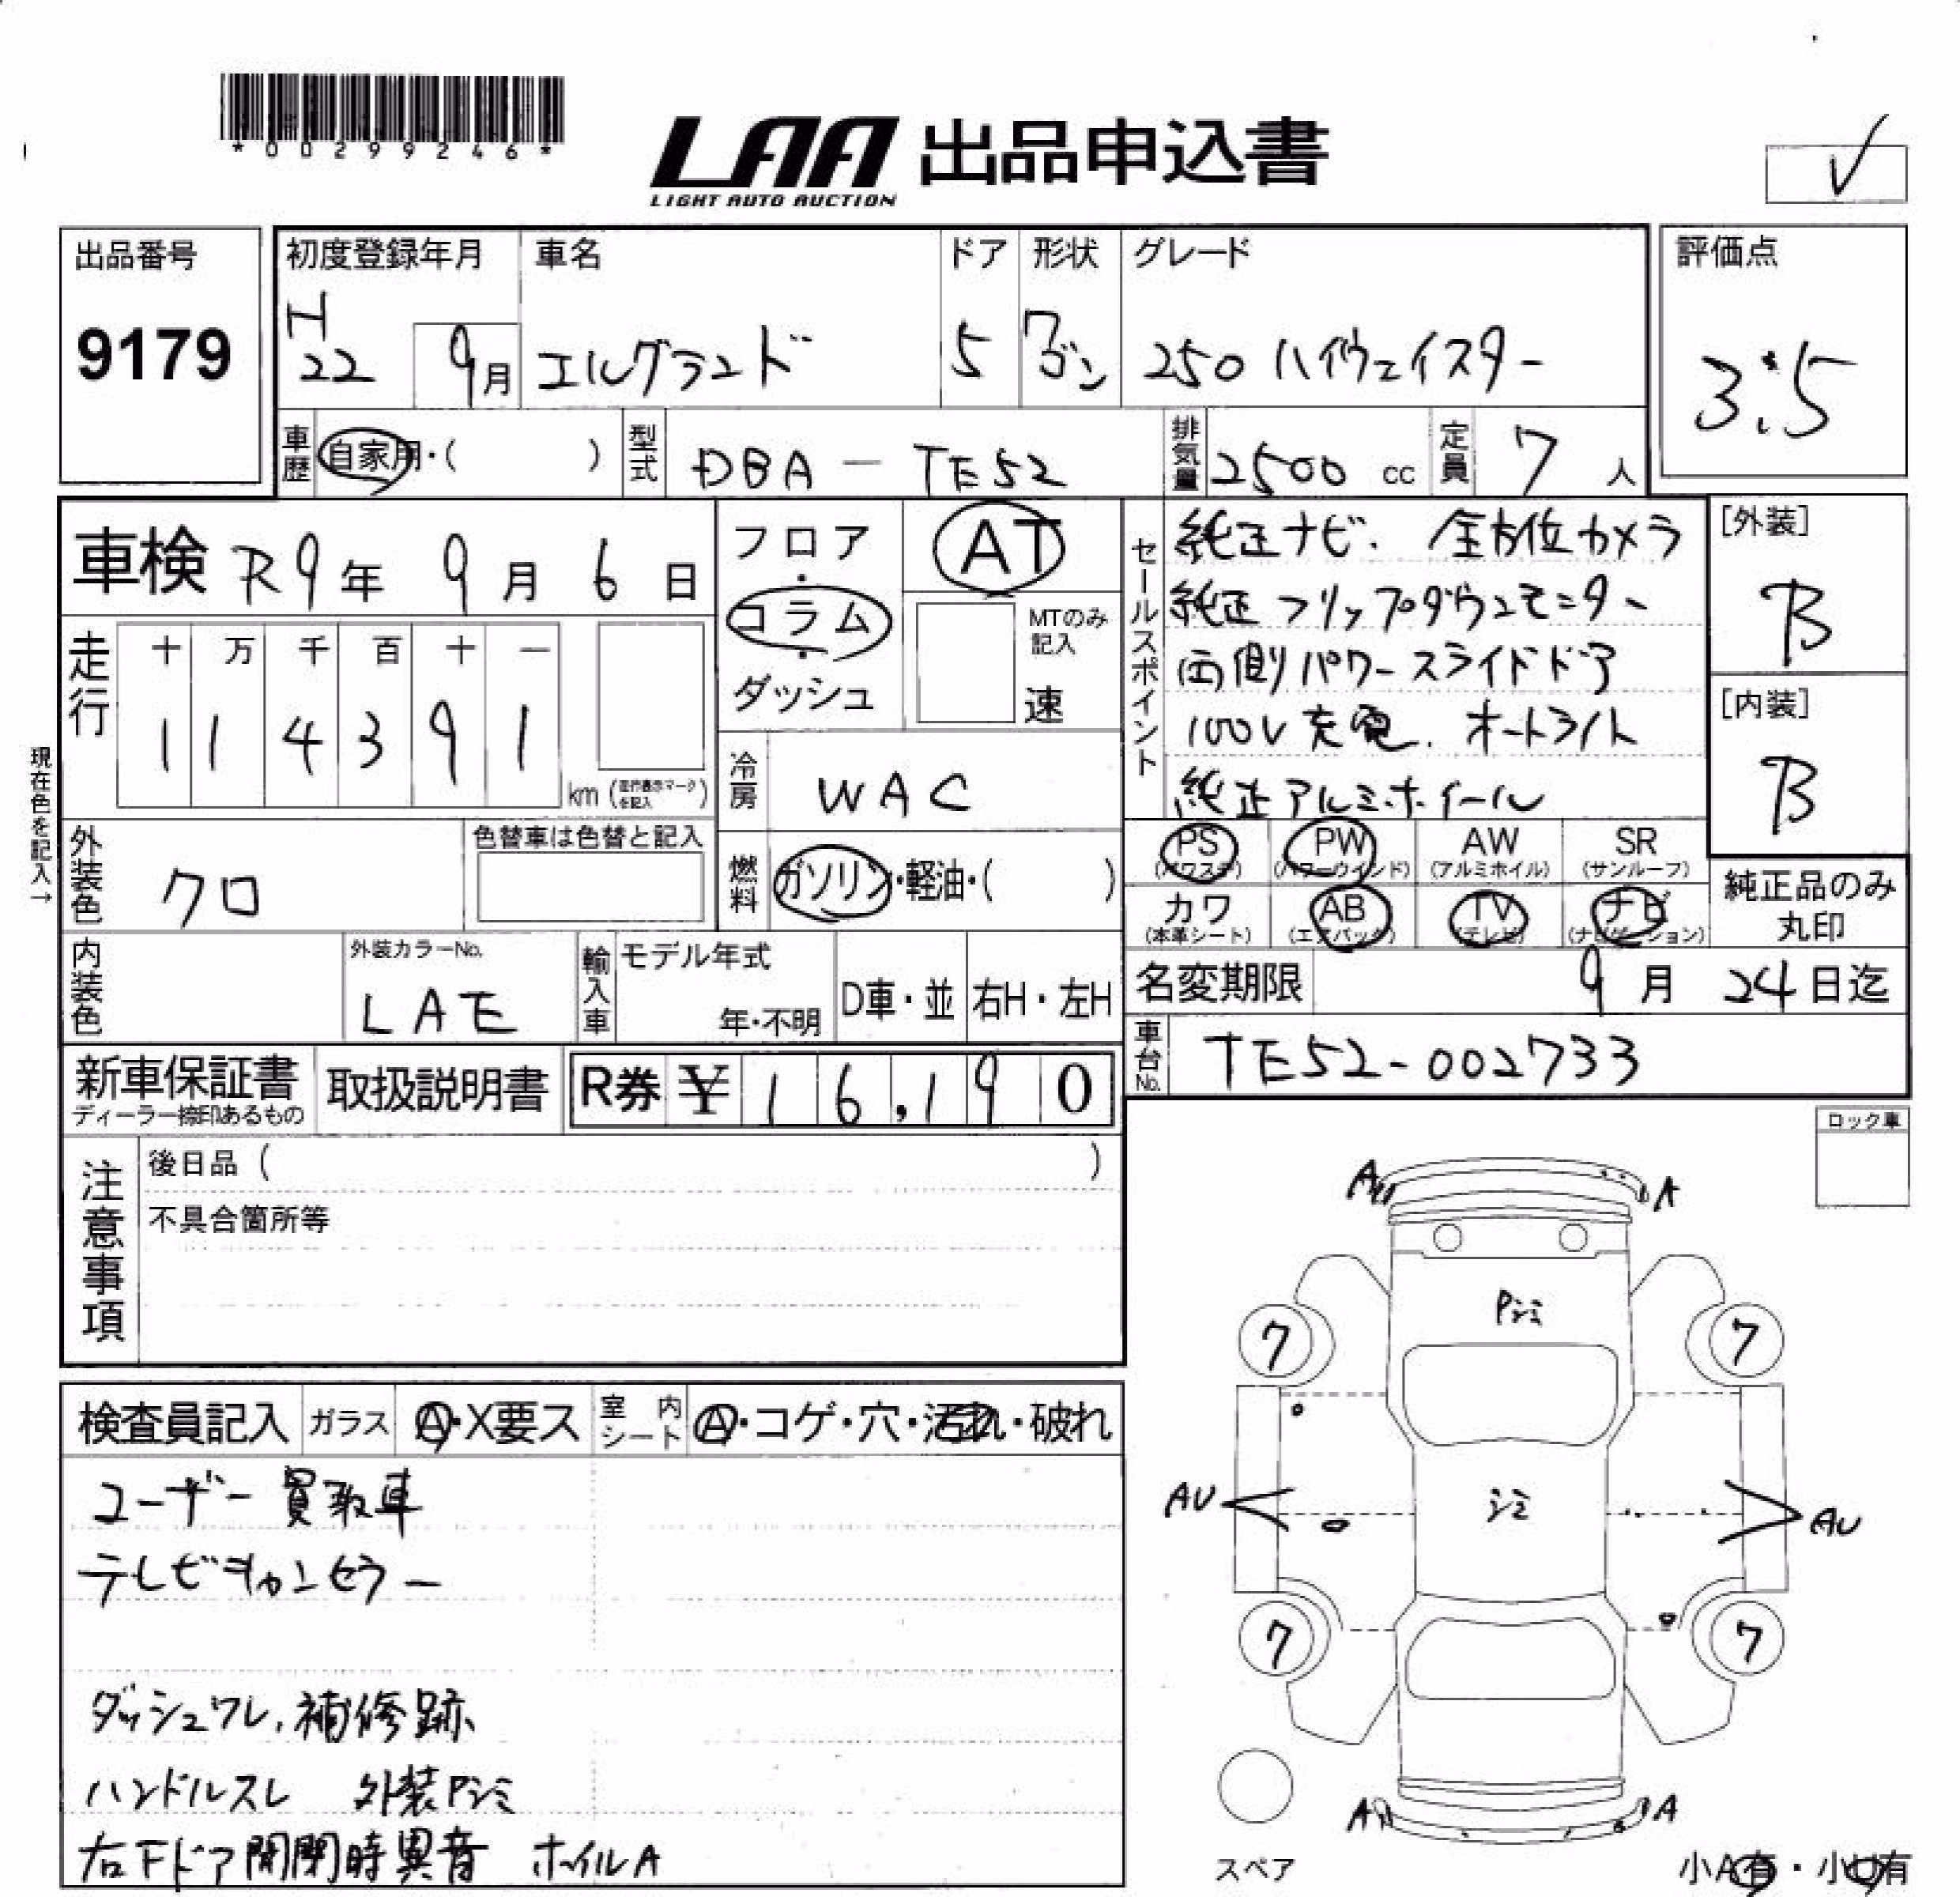 *00299246*
LAA 出品申込書
LIGHT AUTO AUCTION
✓
出品番号
9179
初度登録年月
H22 9月
車名
エルグランド
ドア
5
形状
ワゴン
グレード
250 ハイウェイスター
評価点
3.5
車歴 自家用・( )
型式 DBA-TE52
排気量 2500 cc
定員 7 人
車検 R9年 9月 6日
フロア・コラム・ダッシュ
AT
MTのみ記入
速
セールスポイント
純正ナビ. 全方位カメラ
純正フリップダウンモニター
両側パワースライドドア
100V充電. オートライト
純正アルミホイール
[外装]
B
[内装]
B
走行
十 万 千 百 十 一
1 1 4 3 9 1
km (走行表示マークを記入)
現在色を記入→
冷房 WAC
外装色 クロ
色替車は色替と記入
燃料 ガソリン・軽油・( )
PS (パワステ) PW (パワーウインド) AW (アルミホイル) SR (サンルーフ)
カワ (本革シート) AB (エアバック) TV (テレビ) ナビ (ナビゲーション)
純正品のみ丸印
内装色
外装カラーNo.
LAE
輸入車
モデル年式
年・不明
D車・並
右H・左H
名変期限 9月 24日迄
車台No. TE52-002733
新車保証書
ディーラー捺印あるもの
取扱説明書
R券 ¥16,190
注意事項
後日品 ( )
不具合箇所等
ロック車
検査員記入 ガラス A・X要ス 室内シート A・コゲ・穴・汚れ・破れ
ユーザー買取車
テレビキャンセラー
ダッシュワレ.補修跡
ハンドルスレ 外装Pシミ
右Fドア開閉時異音 ホイルA
A A
Pシミ
7 7
AU シミ AU
7 7
A A
スペア
小A有・小U有